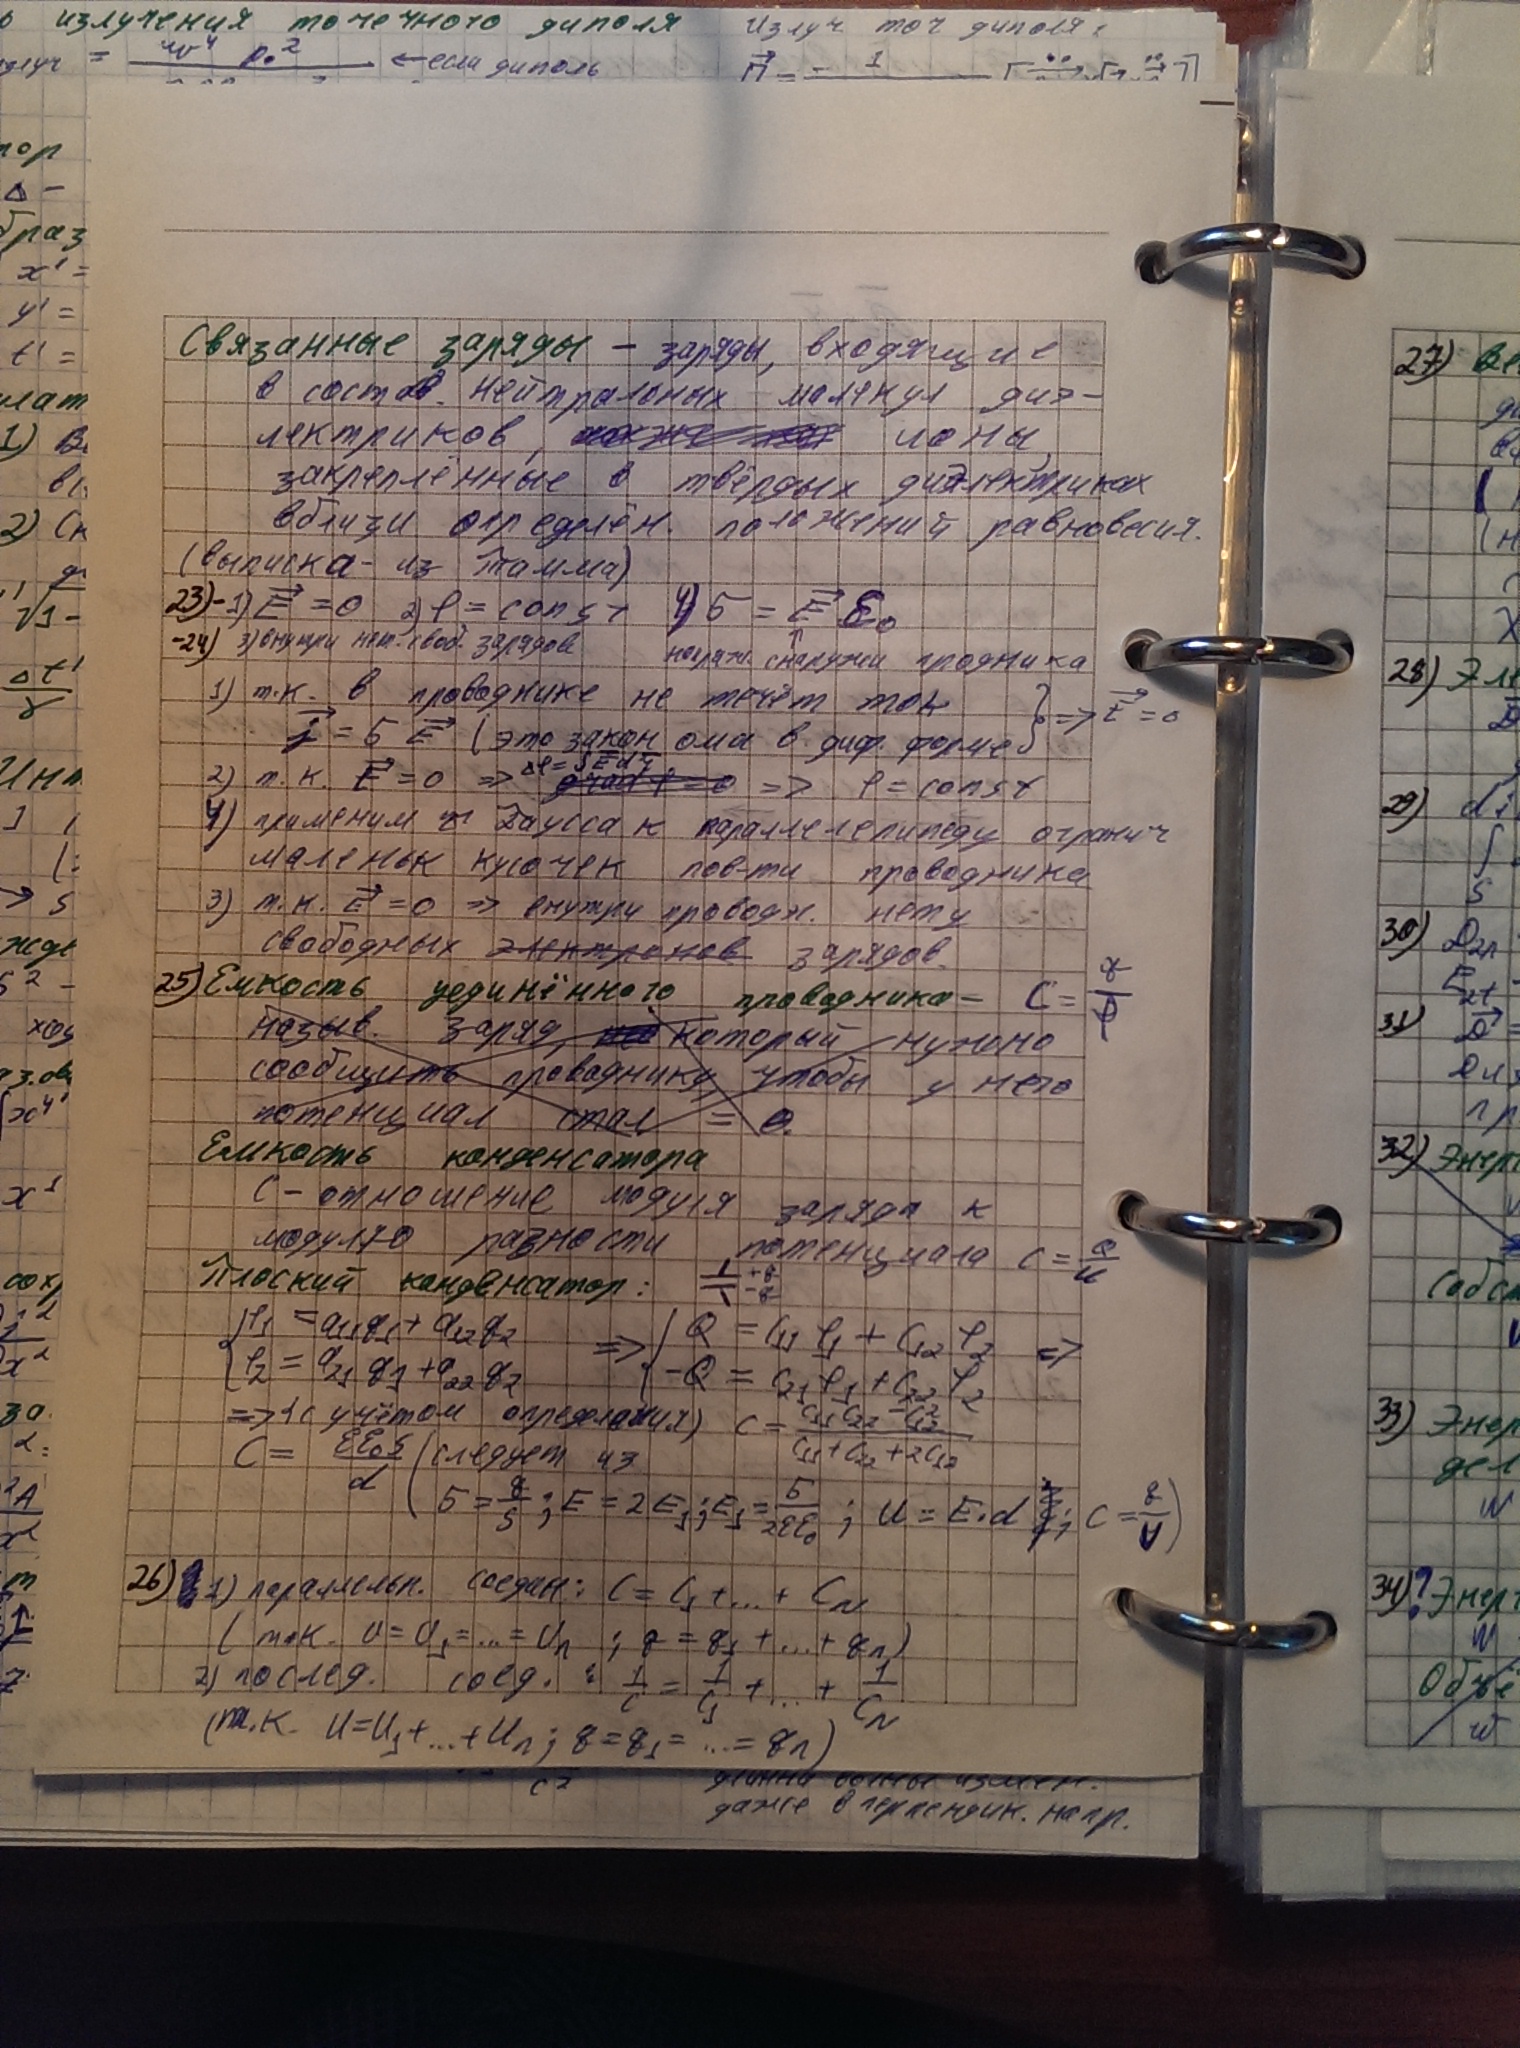 излучения точечного диполя
Излуч точ диполя:
← если диполь
Связанные заряды – заряды, входящие
в состав. нейтральных молекул диэ-
лектриков, ионы,
закреплённые в твёрдых диэлектриках
вблизи определён. положений равновесия.
(выписка из Тамма)
23)-1) E⃗ = 0 2) φ = const 4) σ = E⃗ ε₀
-24) 3) внутри нет. своб. зарядов
↑ напряж. снаружи проводника
1) т.к. в проводнике не течёт ток
j⃗ = σ E⃗ (это закон ома в диф. форме) } => E⃗ = 0
2) т.к. E⃗ = 0 => Δφ = ∫E⃗dr⃗ ~~grad φ = 0~~ => φ = const
4) применим т Гаусса к параллелепипеду огранич
маленьк кусочек пов-ти проводника
3) т.к. E⃗ = 0 => внутри проводн. нету
свободных ~~электронов~~ зарядов.
25) Емкость уединённого проводника – C = q/φ
~~назыв. заряд, который нужно~~
~~сообщить проводнику, чтобы у него~~
~~потенциал стал = 0.~~
Емкость конденсатора
C – отношение модуля заряда к
модулю разности потенциала C = Q/U
Плоский конденсатор: +q −q
{ φ₁ = a₁₁q₁ + a₁₂q₂ => { Q = C₁₁φ₁ + C₁₂φ₂ =>
φ₂ = a₂₁q₁ + a₂₂q₂ −Q = C₂₁φ₁ + C₂₂φ₂
=> (с учётом определения) C = (C₁₁C₂₂ − C₁₂²)/(C₁₁ + C₂₂ + 2C₁₂)
C = εε₀S/d (следует из
σ = q/S; E = 2E₁; E₁ = σ/2εε₀; U = E·d; C = q/U)
26) 1) параллельн. соедин: C = C₁ + ... + C_N
(т.к. U = U₁ = ... = U_n; q = q₁ + ... + q_n)
2) послед. соед.: 1/C = 1/C₁ + ... + 1/C_N
(т.к. U = U₁ + ... + U_n; q = q₁ = ... = q_n)
длинна волны измен.
даже в перпендик. напр.
27)
28) Эле
29)
30) D₂ₙ
31) D⃗ =
Для
пр
32) Энер
собст
33) Энер
34)? Энер
Объё